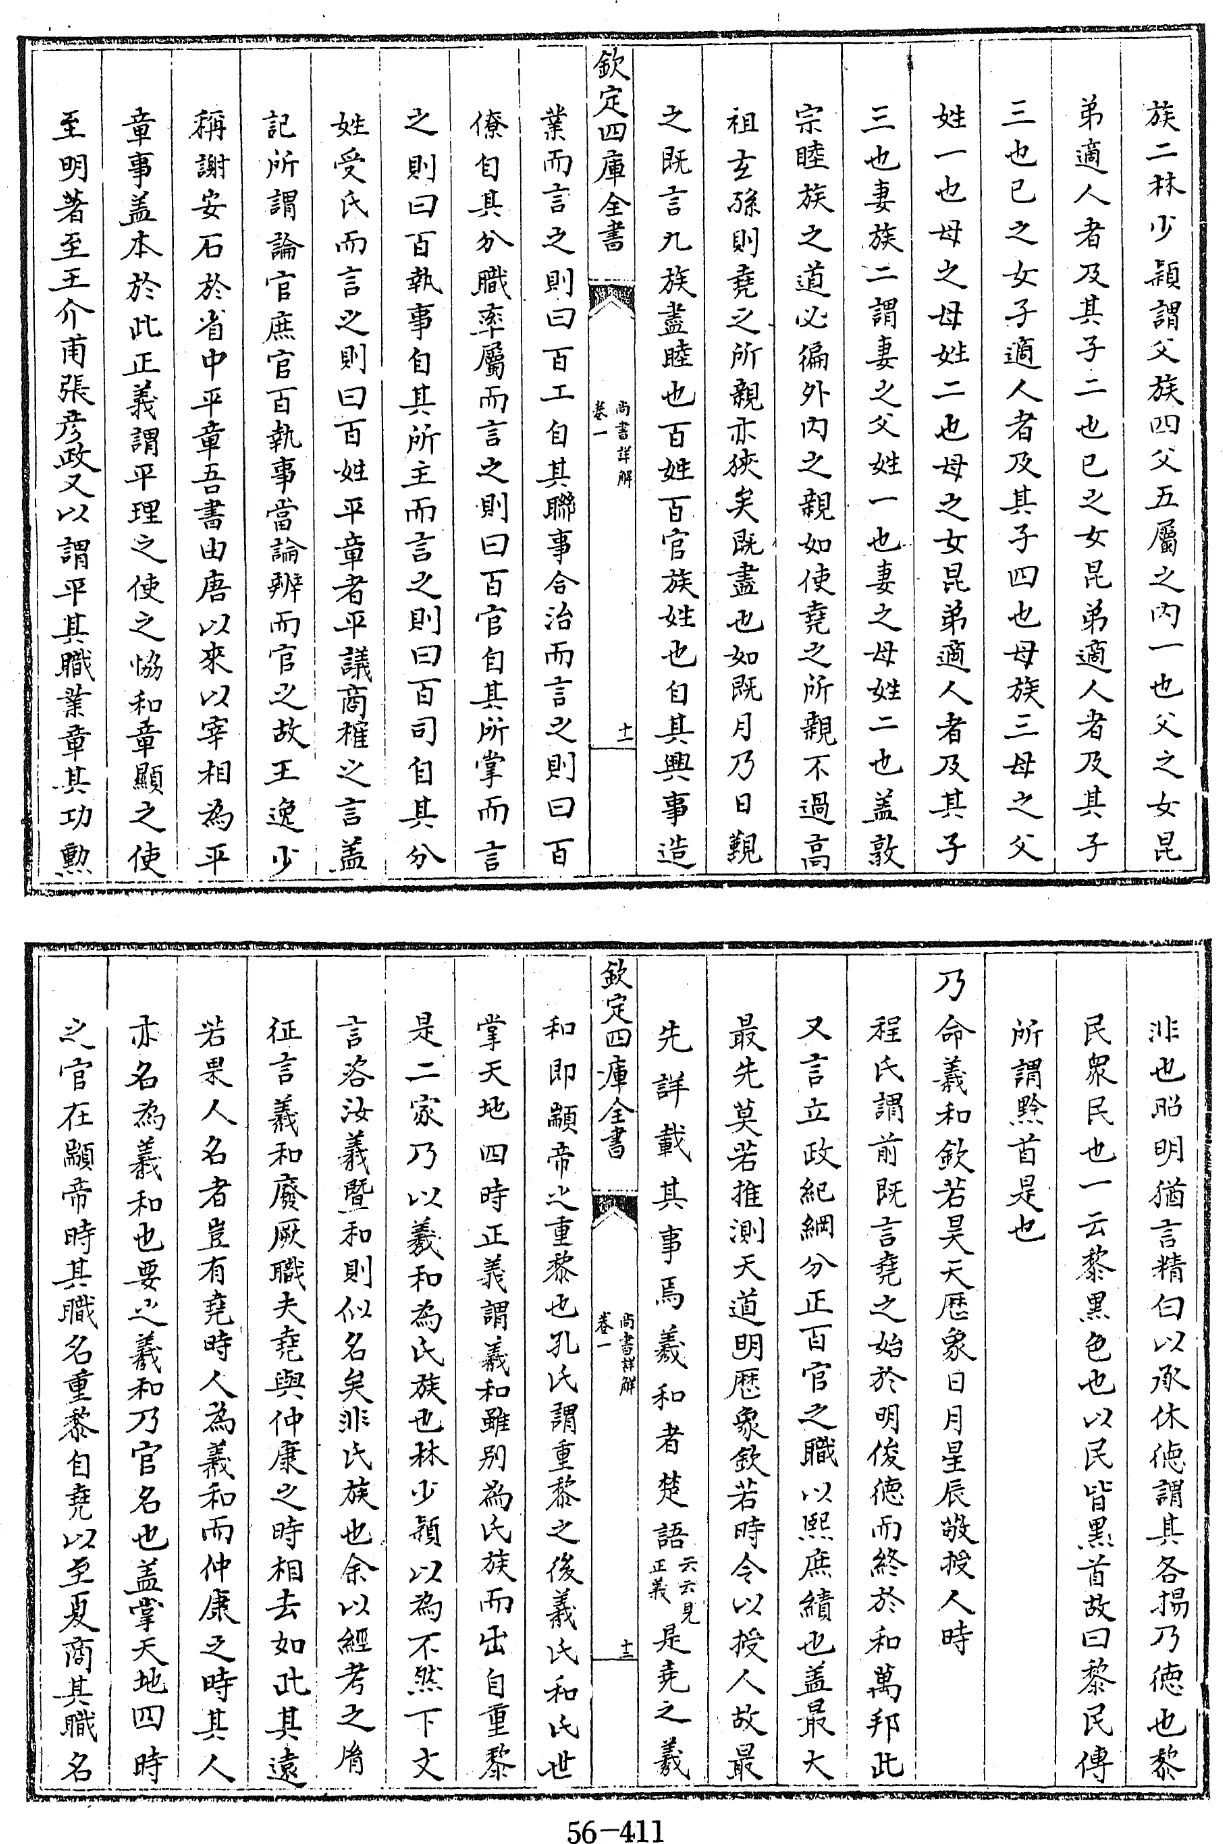 族二林少穎謂父族四父五屬之內一也父之女昆
弟適人者及其子二也已之女昆弟適人者及其子
三也已之女子適人者及其子四也母族三母之父
姓一也母之母姓二也母之女昆弟適人者及其子
三也妻族二謂妻之父姓一也妻之母姓二也盖敦
宗睦族之道必徧外內之親如使堯之所親不過高
祖玄孫則堯之所親亦狹矣既盡也如既月乃日覲
之既言九族盡睦也百姓百官族姓也自其興事造
欽定四庫全書
尚書詳解
卷一
十一
業而言之則曰百工自其聯事合治而言之則曰百
僚自其分職率屬而言之則曰百官自其所掌而言
之則曰百執事自其所主而言之則曰百司自其分
姓受氏而言之則曰百姓平章者平議商榷之言盖
記所謂論官庶官百執事當論辨而官之故王逸少
稱謝安石於省中平章吾書由唐以來以宰相為平
章事盖本於此正義謂平理之使之恊和章顯之使
至明著至王介甫張彥政又以謂平其職業章其功勲
非也昭明猶言精白以承休徳謂其各揚乃徳也黎
民衆民也一云黎黒色也以民皆黒首故曰黎民傳
所謂黔首是也
乃命羲和欽若昊天厯象日月星辰敬授人時
程氏謂前既言堯之始於明俊徳而終於和萬邦此
又言立政紀綱分正百官之職以熙庶績也盖最大
最先莫若推測天道明厯象欽若時令以授人故最
先詳載其事焉羲和者楚語云云見正義是堯之羲
欽定四庫全書
尚書詳解
卷一
十二
和即顓帝之重黎也孔氏謂重黎之後羲氏和氏世
掌天地四時正義謂羲和雖别為氏族而出自重黎
是二家乃以羲和為氏族也林少穎以為不然下文
言咨汝羲曁和則似名矣非氏族也余以經考之㣧
征言羲和廢厥職夫堯與仲康之時相去如此其逺
若果人名者豈有堯時人為羲和而仲康之時其人
亦名為羲和也要之羲和乃官名也盖掌天地四時
之官在顓帝時其職名重黎自堯以至夏商其職名
56-411